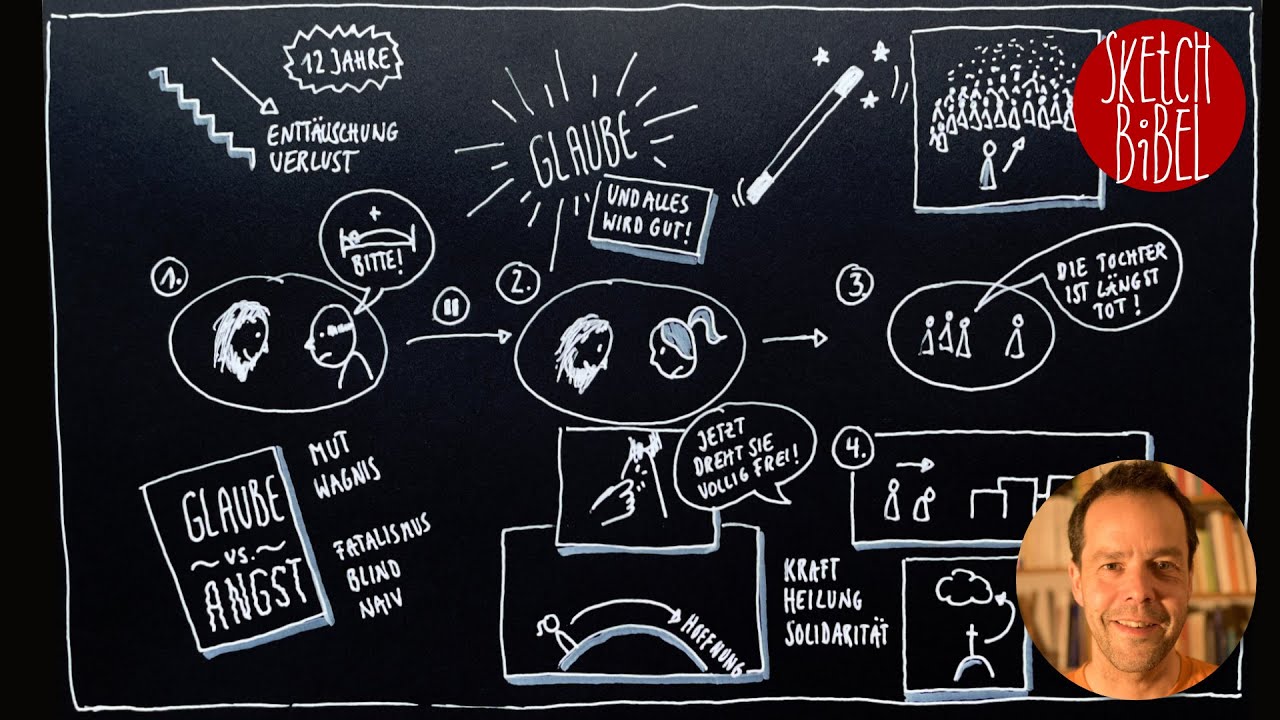 12 JAHRE
ENTTÄUSCHUNG
VERLUST
GLAUBE
UND ALLES
WIRD GUT!
SKETCH
BIBEL
1.
+
BITTE!
2.
3.
DIE TOCHTER
IST LÄNGST
TOT!
GLAUBE
~ VS. ~
ANGST
MUT
WAGNIS
FATALISMUS
BLIND
NAIV
JETZT
DREHT SIE
VÖLLIG FREI!
HOFFNUNG
KRAFT
HEILUNG
SOLIDARITÄT
4.